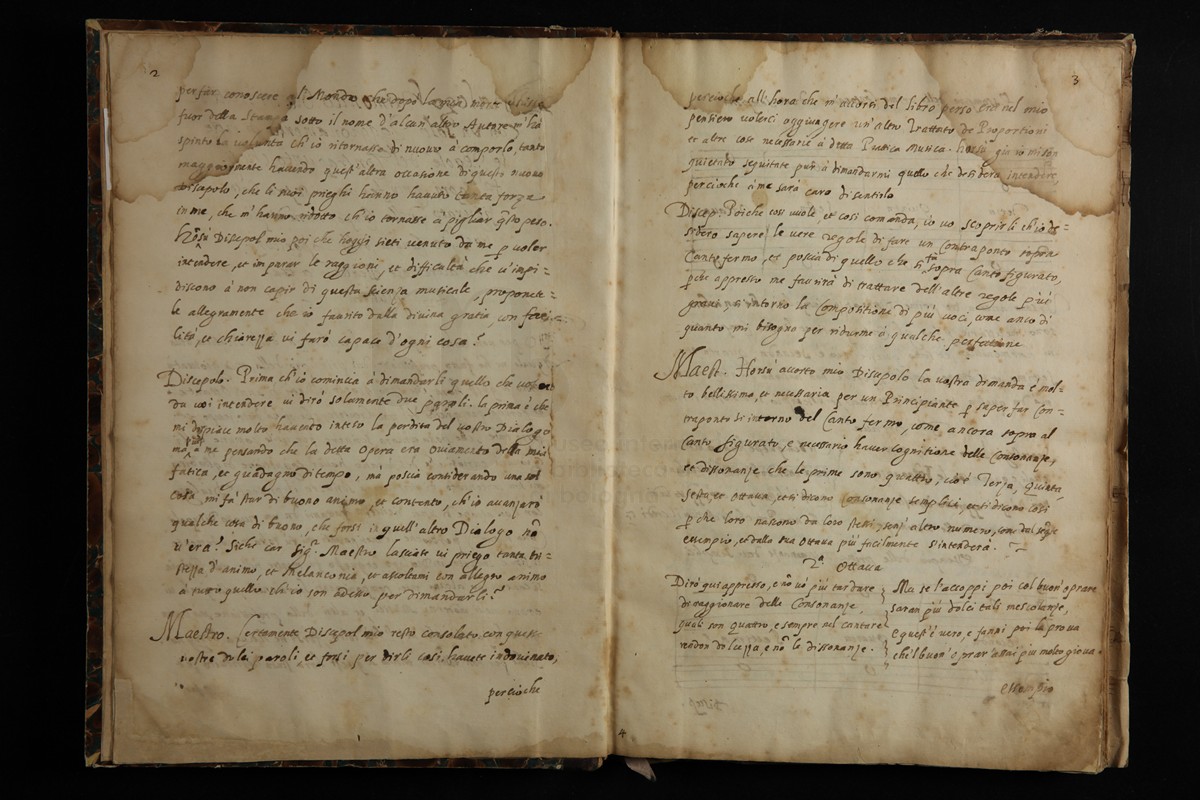 2
per far conoscere al Mondo che dopo la mia morte
fuor della Stampa sotto il nome d'alcun'altro Autore m'ha
spinto la volontà ch'io ritornasse di nuovo à comporlo, tanto
maggiormente havendo quest'altra occasione di questo nuovo
Discepolo, che li suoi prieghi hanno havuto tanta forza
in me, che m'hanno ridotto ch'io tornasse à pigliar q̃sto peso.
Horsù Discepol mio poi che hoggi sieti venuto da me p̱ voler
intendere, et imparar le raggioni, et difficultà che v'inpi=
discono à non capir di questa scienza musicale, proponete=
le allegramente che io faurito dalla divina gratia, con faci=
lità, et chiarezza vi farò capace d'ogni cosa.
Discepolo. Prima ch'io comincia à dimandarli quello che
da voi intendere vi dirò solamente due paroli. la prima è che
mi dispiace molto havendo inteso la perdita del vostro Dialogo
ne pensando che la detta Opera era oviamento della mia
fatica, et guadagno di tempo, mà poscia considerando una sol
cosa mi fà star di buono animo, et contento, ch'io avanzarò
qualche cosa di buono, che forsi in quell'altro Dialogo nõ
v'era. Siche car Sig.r Maestro lasciate vi priego tanta tri=
stezza d'animo, et melanconia, et ascoltami con allegro animo
à tutto quello ch'io son adesso per dimandarli.
Maestro. Certamente Discepol mio restò consolato, con queste
vostre dolci paroli, et forsi per dirli così, havete indovinato,
percioche
3
percioche all'hora che m'accorsi del libro perso era nel mio
pensiero volerci aggiungere un'altro Trattato de Proportioni
et altre cose necessarie à detta Prattica Musica. Horsù già io mi son
quietato seguitate pur à dimandarmi quello che desidera intendere,
percioche à me sarà caro di sentirlo
Discep. Poiche così vuole et così comanda, io vo scoprirli ch'io de=
sidero sapere le vere regole di fare un Contraponto sopra
Canto fermo, et poscia di quello che si fà sopra Canto figurato,
p̱che appresso me faurirà di trattare dell'altre regole p̱ più
gravi, si intorno la Compositione di più voci, come anco di
quanto mi bisogna per ridurme à qualche perfettione
Maest. Horsù accorto mio Discepolo la vostra dimanda è mol=
to bellissimo, et necessaria per un Principiante p̱ saper far Con=
traponto si intorno del Canto fermo, come ancora sopra al
Canto figurato, è necessario haver cognitione delle Consonanze,
et dissonanze che le prime sono quattro, cioè Terza, Quinta
Sesta, et Ottava, et si dicono Consonanze semplici, et si dicono così
p̱che loro nascono da loro stessi, senz'altro numero, come dal
essempio, et dalla sua Ottava più facilmente s'intenderà.
2.a Ottava
Dirò qui appresso, e nõ vò più tardare
di raggionare delle Consonanze,
quali son quattro, e sempre nel cantare
rendon dolcezza, e nõ le dissonanze.
Ma se l'accoppi poi col buon'oprare
saran più dolci tali mescolanze,
e quest'è vero, e fanni poi la prova
che'l buon'oprar'assai più molto giova.
essempio
4